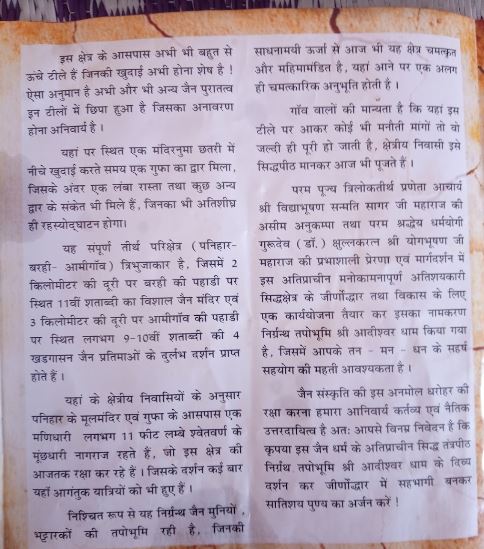 इस क्षेत्र के आसपास अभी भी बहुत से
ऊंचे टीले हैं जिनकी खुदाई अभी होना शेष है !
ऐसा अनुमान है अभी और भी अन्य जैन पुरातत्व
इन टीलों में छिपा हुआ है जिसका अनावरण
होना अनिवार्य है ।
यहां पर स्थित एक मंदिरनुमा छतरी में
नीचे खुदाई करते समय एक गुफा का द्वार मिला,
जिसके अंदर एक लंबा रास्ता तथा कुछ अन्य
द्वार के संकेत भी मिले हैं, जिनका भी अतिशीघ्र
ही रहस्योद्घाटन होगा।
यह संपूर्ण तीर्थ परिक्षेत्र (पनिहार-
बरही- आमीगाँव) त्रिभुजाकार है, जिसमें 2
किलोमीटर की दूरी पर बरही की पहाडी पर
स्थित 11वीं शताब्दी का विशाल जैन मंदिर एवं
3 किलोमीटर की दूरी पर आमीगाँव की पहाडी
पर स्थित लगभग 9-10वीं शताब्दी की 4
खडगासन जैन प्रतिमाओं के दुर्लभ दर्शन प्राप्त
होते हैं ।
यहां के क्षेत्रीय निवासियों के अनुसार
पनिहार के मूलमंदिर एवं गुफा के आसपास एक
मणिधारी लगभग 11 फीट लम्बे श्वेतवर्ण के
मूंछधारी नागराज रहते हैं, जो इस क्षेत्र की
आजतक रक्षा कर रहे हैं । जिसके दर्शन कई बार
यहाँ आगंतुक यात्रियों को भी हुए हैं ।
निश्चित रूप से यह निर्ग्रन्थ जैन मुनियों ,
भट्टारकों की तपोभूमि रही है, जिनकी
साधनामयी ऊर्जा से आज भी यह क्षेत्र चमत्कृत
और महिमामंडित है, यहां आने पर एक अलग
ही चमत्कारिक अनुभूति होती है ।
गाँव वालों की मान्यता है कि यहां इस
टीले पर आकर कोई भी मनौती मांगों तो वो
जल्दी ही पूरी हो जाती है, क्षेत्रीय निवासी इसे
सिद्धपीठ मानकर आज भी पूजते हैं ।
परम पूज्य त्रिलोकतीर्थ प्रणेता आचार्य
श्री विद्याभूषण सन्मति सागर जी महाराज की
असीम अनुकम्पा तथा परम श्रद्धेय धर्मयोगी
गुरूदेव (डॉ.) क्षुल्लकरत्न श्री योगभूषण जी
महाराज की प्रभाशाली प्रेरणा एवं मार्गदर्शन में
इस अतिप्राचीन मनोकामनापूर्ण अतिशयकारी
सिद्धक्षेत्र के जीर्णोद्धार तथा विकास के लिए
एक कार्ययोजना तैयार कर इसका नामकरण
निर्ग्रन्थ तपोभूमि श्री आदीश्वर धाम किया गया
है, जिसमें आपके तन - मन - धन के सहर्ष
सहयोग की महती आवश्यकता है ।
जैन संस्कृति की इस अनमोल धरोहर की
रक्षा करना हमारा आनिवार्य कर्तव्य एवं नैतिक
उत्तरदायित्व है अतः आपसे विनम्र निवेदन है कि
कृपया इस जैन धर्म के अतिप्राचीन सिद्ध तंत्रपीठ
निर्ग्रंथ तपोभूमि श्री आदीश्वर धाम के दिव्य
दर्शन कर जीर्णोद्धार में सहभागी बनकर
सातिशय पुण्य का अर्जन करें !